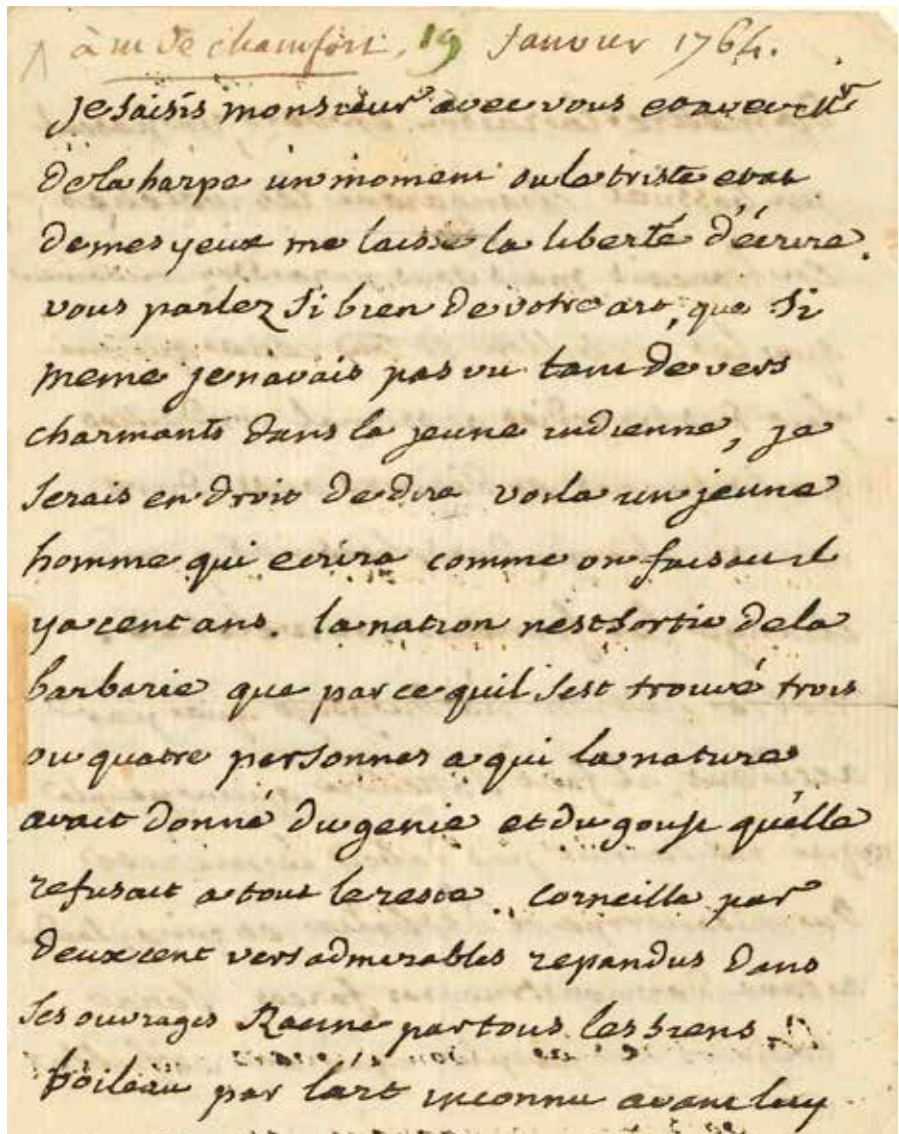 à m de chamfort, 19 Janvier 1764.
je saisis monsieur avec vous et avec Mr
de la harpe un moment ou le triste etat
de mes yeux me laisse la liberté d'écrire.
vous parlez si bien de votre art, que si
meme je navais pas vu tant de vers
charmants dans la jeune indienne, je
serais en droit de dire voila un jeune
homme qui ecrira comme on faisait il
ya cent ans. la nation nest sortie de la
barbarie que parce quil sest trouvé trois
ou quatre personnes a qui la nature
avait donné du genie et du goust qu'elle
refusait a tout le reste. Corneille par
deux cent vers admirables repandus dans
ses ouvrages Racine par tous les siens
boileau par lart inconnu avant luy